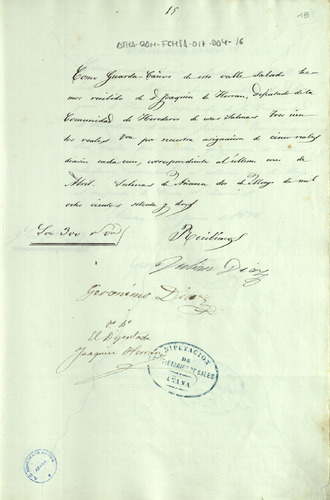 15
18
ATHA-DAH-FCMSA-017-004-16
Como Guarda-Caños de este valle Salado he-
mos recibido de D. Joaquin de Herran, Diputado de la
Comunidad de Herederos de estas Salinas tres cien-
tos reales Von por nuestra asignacion de cinco reales
diarios cada uno, correspondiente al último mes de
Abril. Salinas de Añana dos de Mayo de mil
ocho cientos setenta y dos
Son 300 r. Von
Recibimos
Julian Diaz
Geronimo Diaz
Vº Bº
El Diputado
Joaquin Herran
DIPUTACION
DE
HEREDEROS DE SALES
AÑANA